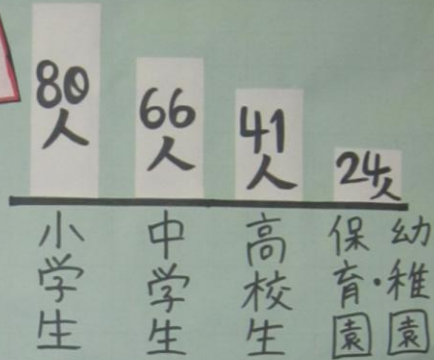 80人
66人
41人
24人
小学生
中学生
高校生
幼稚園・
保育園